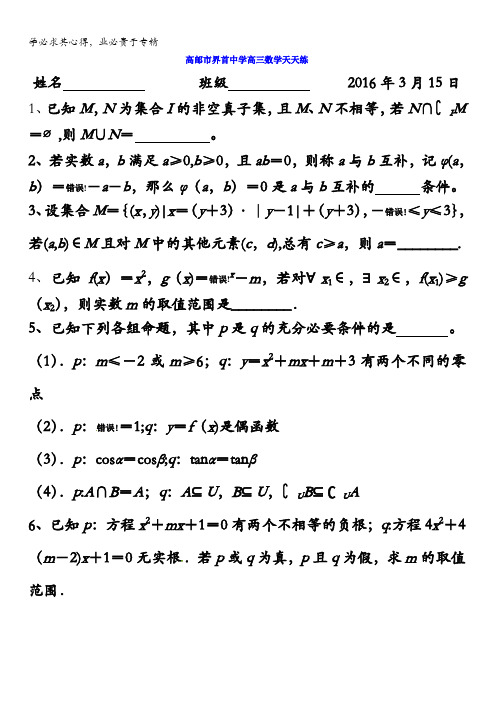 学必求其心得，业必贵于专精
高邮市界首中学高三数学天天练
姓名 班级 2016 年 3 月 15 日
1、已知 M，N 为集合 I 的非空真子集，且 M、N 不相等，若 N∩∁IM
＝∅ ,则 M∪N＝ 。
2、若实数 a，b 满足 a≥0,b≥0，且 ab＝0，则称 a 与 b 互补，记 φ(a，
b）＝错误!－a－b，那么 φ（a，b）＝0 是 a 与 b 互补的 条件。
3、设集合 M＝{(x，y)|x＝(y＋3)·｜y－1|＋(y＋3)，－错误!≤y≤3}，
若(a,b)∈M 且对 M 中的其他元素(c，d),总有 c≥a，则 a＝________.
4、已知 f(x）＝x²，g（x)＝错误!ˣ－m，若对∀ x₁∈，∃ x₂∈，f(x₁)≥g
（x₂），则实数 m 的取值范围是________．
5、已知下列各组命题，其中 p 是 q 的充分必要条件的是 。
（1）．p：m≤－2 或 m≥6；q：y＝x²＋mx＋m＋3 有两个不同的零
点
（2）．p：错误!＝1;q：y＝f（x)是偶函数
（3）．p：cosα＝cosβ;q：tanα＝tanβ
（4）．p:A∩B＝A；q：A⊆U，B⊆U，∁UB⊆∁UA
6、已知 p：方程 x²＋mx＋1＝0 有两个不相等的负根；q:方程 4x²＋4
（m－2)x＋1＝0 无实根．若 p 或 q 为真，p 且 q 为假，求 m 的取值
范围．